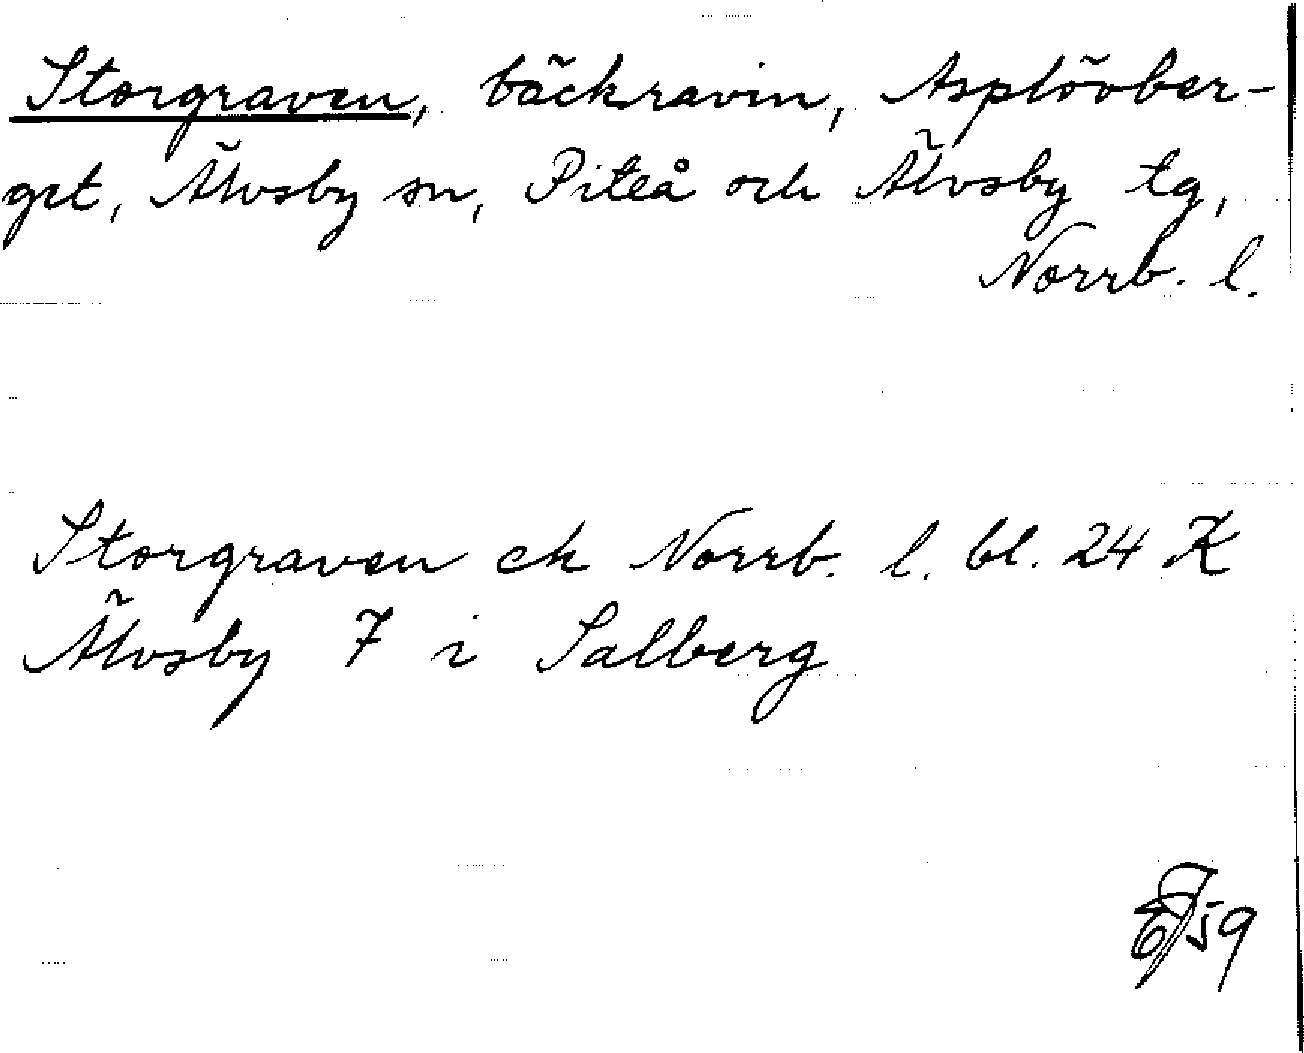 Storgraven, bäckravin, Asplövber-
get, Älvsby sn, Piteå och Älvsby tg,
Norrb. l.
Storgraven ek Norrb. l. bl. 24 K
Älvsby 7 i Salberg
59